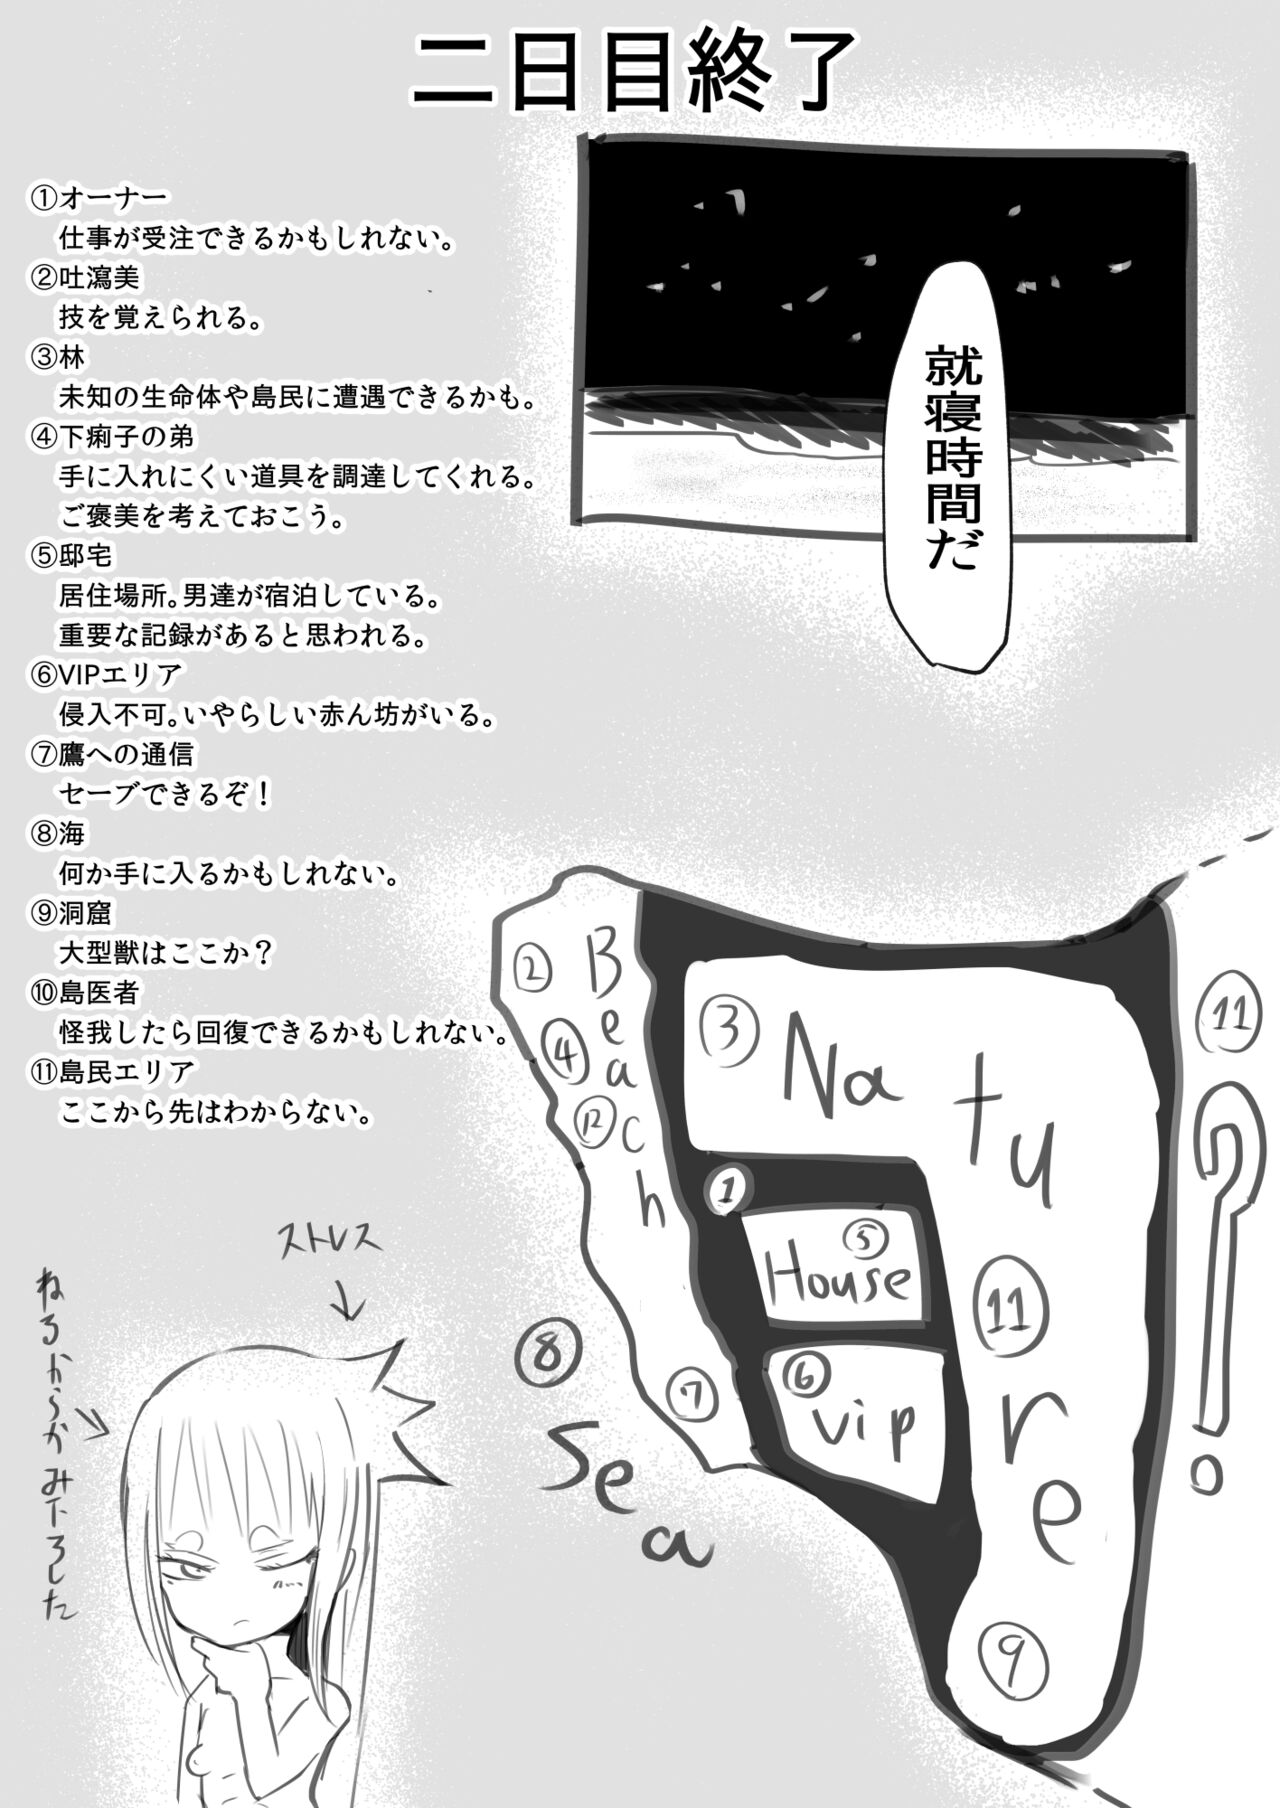 二日目終了
①オーナー
仕事が受注できるかもしれない。
②吐瀉美
技を覚えられる。
③林
未知の生命体や島民に遭遇できるかも。
④下痢子の弟
手に入れにくい道具を調達してくれる。
ご褒美を考えておこう。
⑤邸宅
居住場所。男達が宿泊している。
重要な記録があると思われる。
⑥VIPエリア
侵入不可。いやらしい赤ん坊がいる。
⑦鷹への通信
セーブできるぞ！
⑧海
何か手に入るかもしれない。
⑨洞窟
大型獣はここか？
⑩島医者
怪我したら回復できるかもしれない。
⑪島民エリア
ここから先はわからない。
就寝時間だ
② Beach
④
⑫
⑦
③ Nature
⑪
⑨
①
⑤
House
⑥
vip
⑧
Sea
⑪
?
ストレス
ねるからかみ下ろした